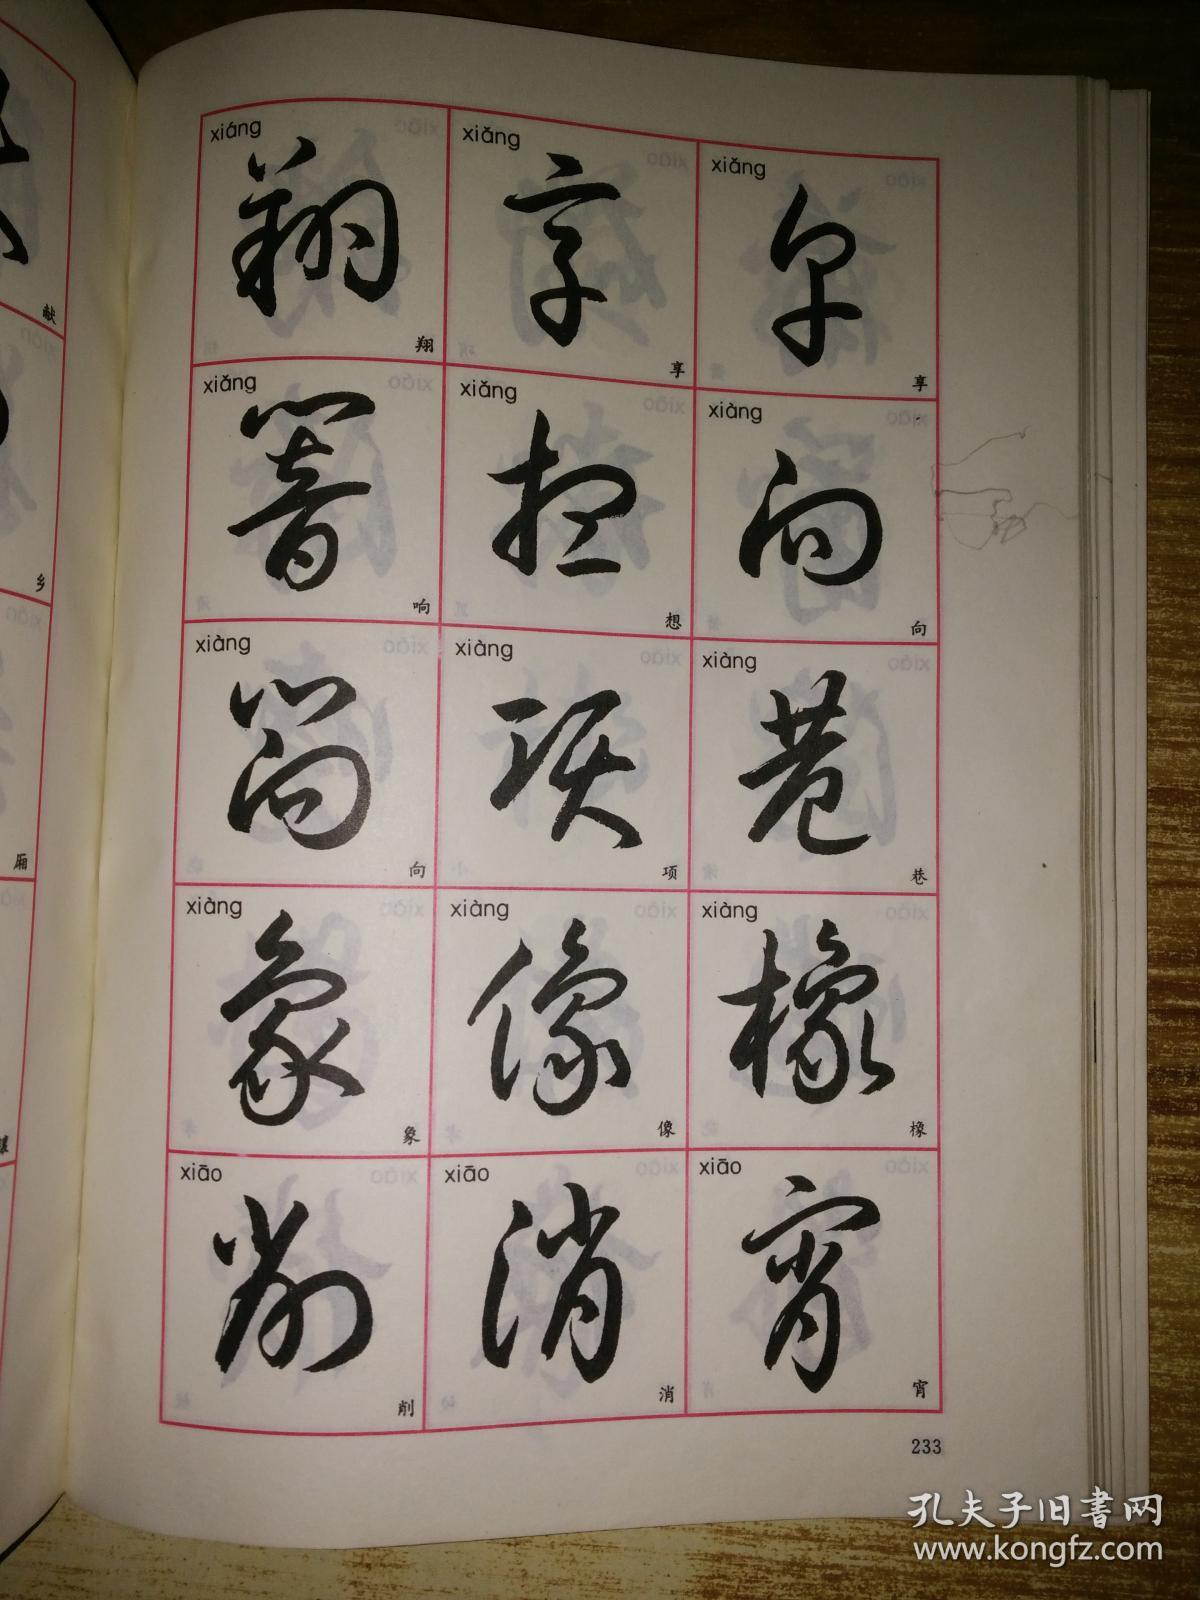 xiáng xiǎng xiǎng
翔 享 享
翔 享 享
xiǎng xiǎng xiàng
響 想 向
响 想 向
xiàng xiàng xiàng
嚮 项 巷
向 项 巷
xiàng xiàng xiàng
象 像 橡
象 像 橡
xiāo xiāo xiāo
削 消 宵
削 消 宵
233
献
乡
厢
孔夫子旧書网
www.kongfz.com